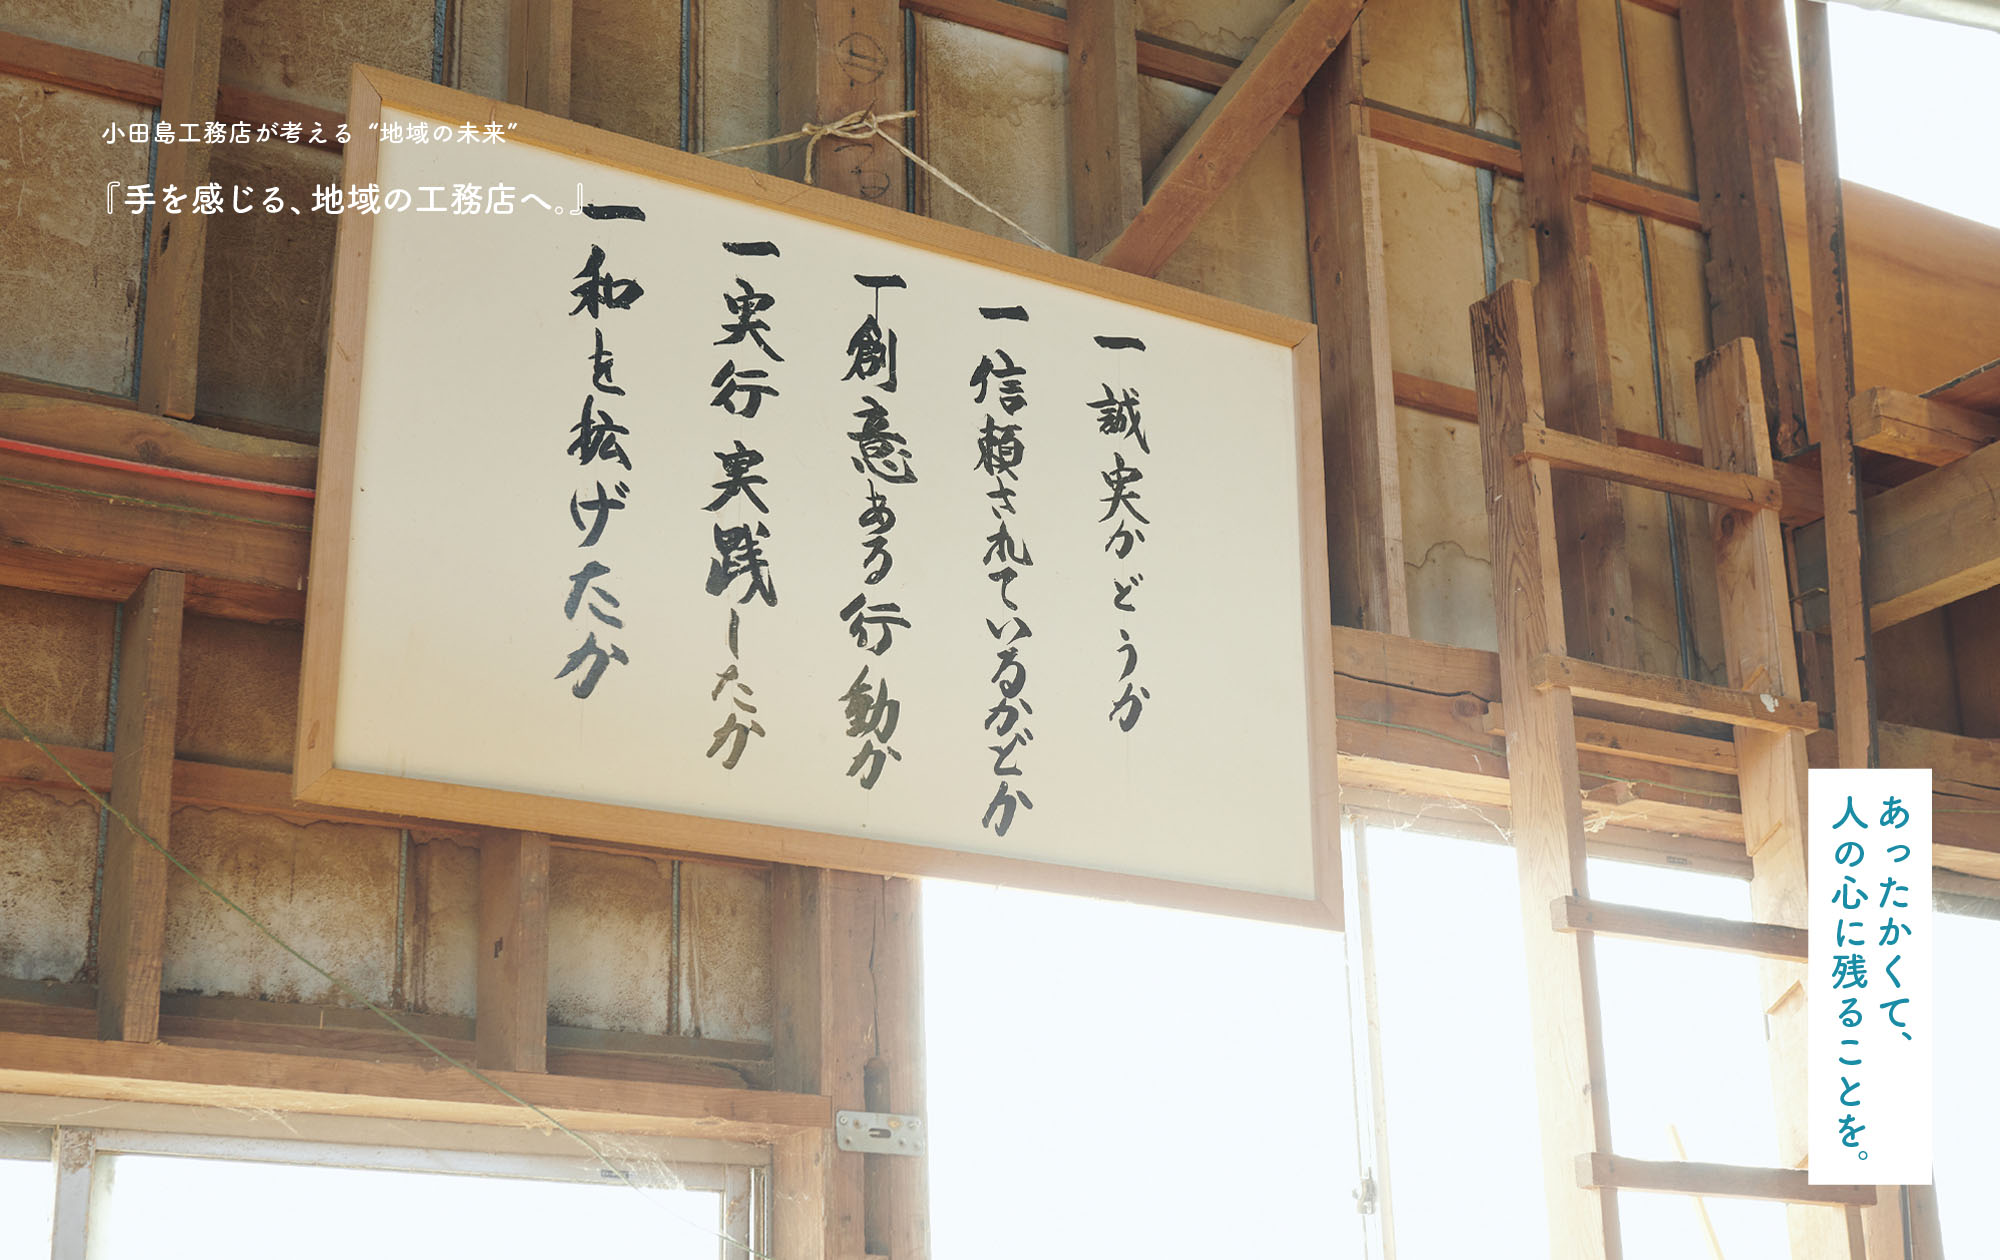 小田島工務店が考える “地域の未来”
『手を感じる、地域の工務店へ。』
一 誠実かどうか
一 信頼されているかどか
一 創意ある行動か
一 実行実践したか
一 和を拡げたか
あったかくて、
人の心に残ることを。